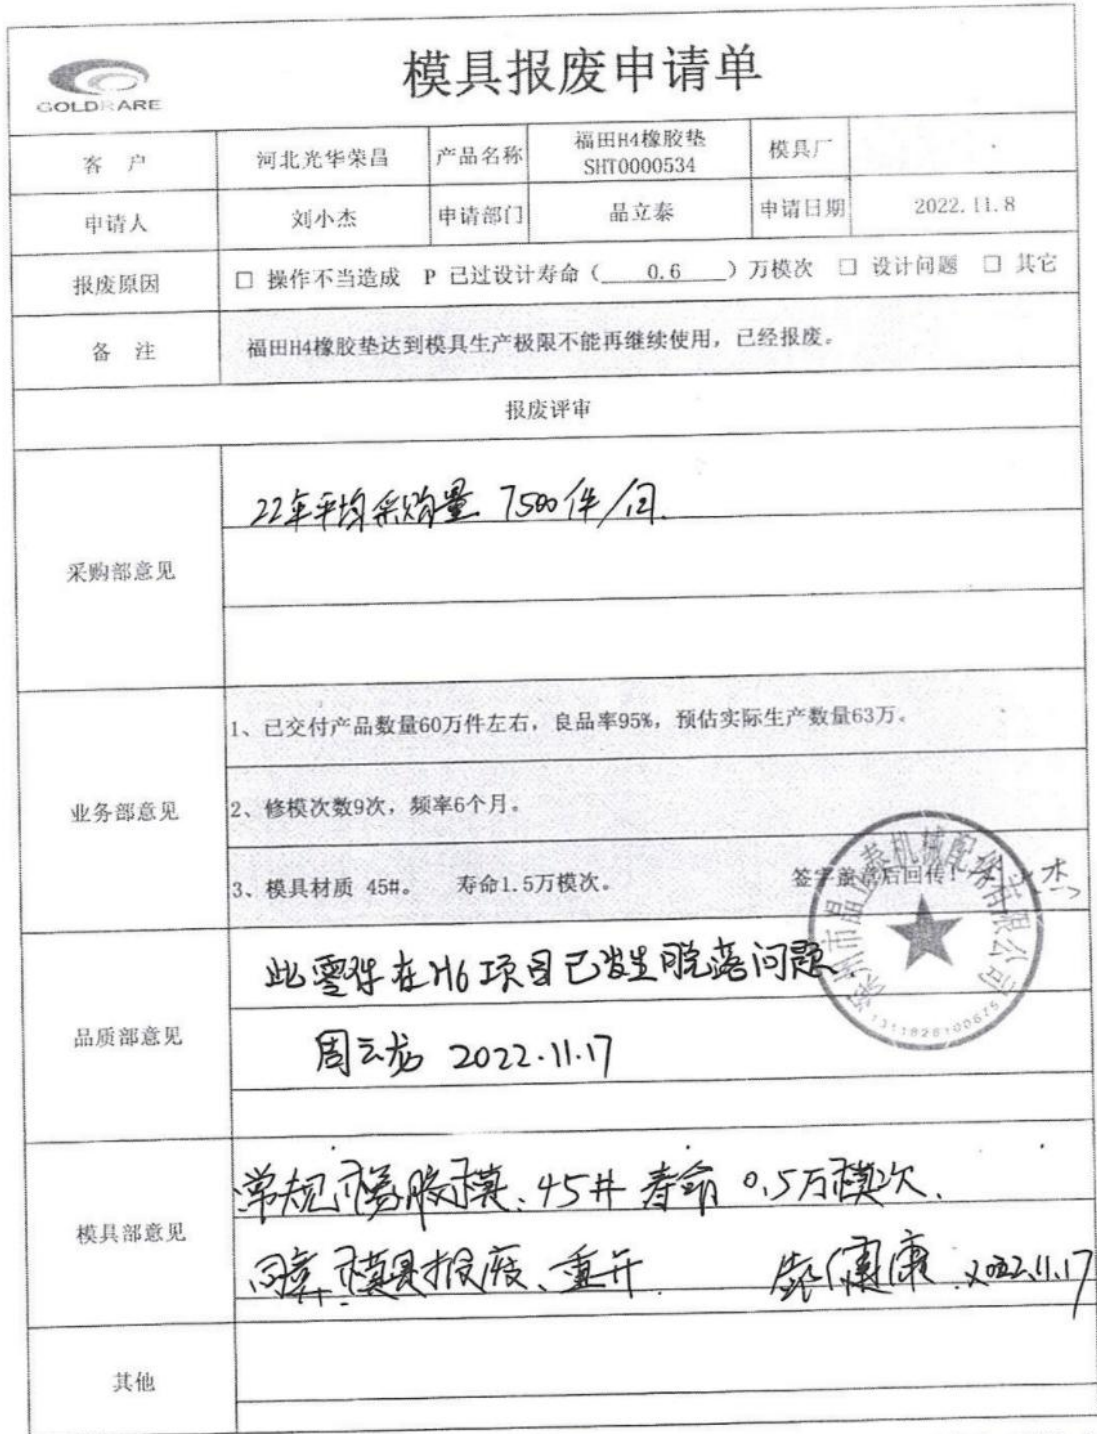 模具报废申请单
GOLDRARE
客 户 河北光华荣昌 产品名称 福田H4橡胶垫 SHT0000534 模具厂
申请人 刘小杰 申请部门 晶立泰 申请日期 2022.11.8
报废原因 □ 操作不当造成 P 已过设计寿命(0.6)万模次 □ 设计问题 □ 其它
备 注 福田H4橡胶垫达到模具生产极限不能再继续使用，已经报废。
报废评审
22年平均采购量 7500件/月.
采购部意见
1、已交付产品数量60万件左右，良品率95%，预估实际生产数量63万。
业务部意见 2、修模次数9次，频率6个月。
3、模具材质 45#。 寿命1.5万模次。 签字盖章后回传！
市晶立泰机械配件有限公司
此零件在H6项目已发生脱落问题
品质部意见 周云龙 2022.11.17
常规橡胶模、45# 寿命 0.5万模次、
模具部意见
同意模具报废、重开 健康 2022.11.17
其他